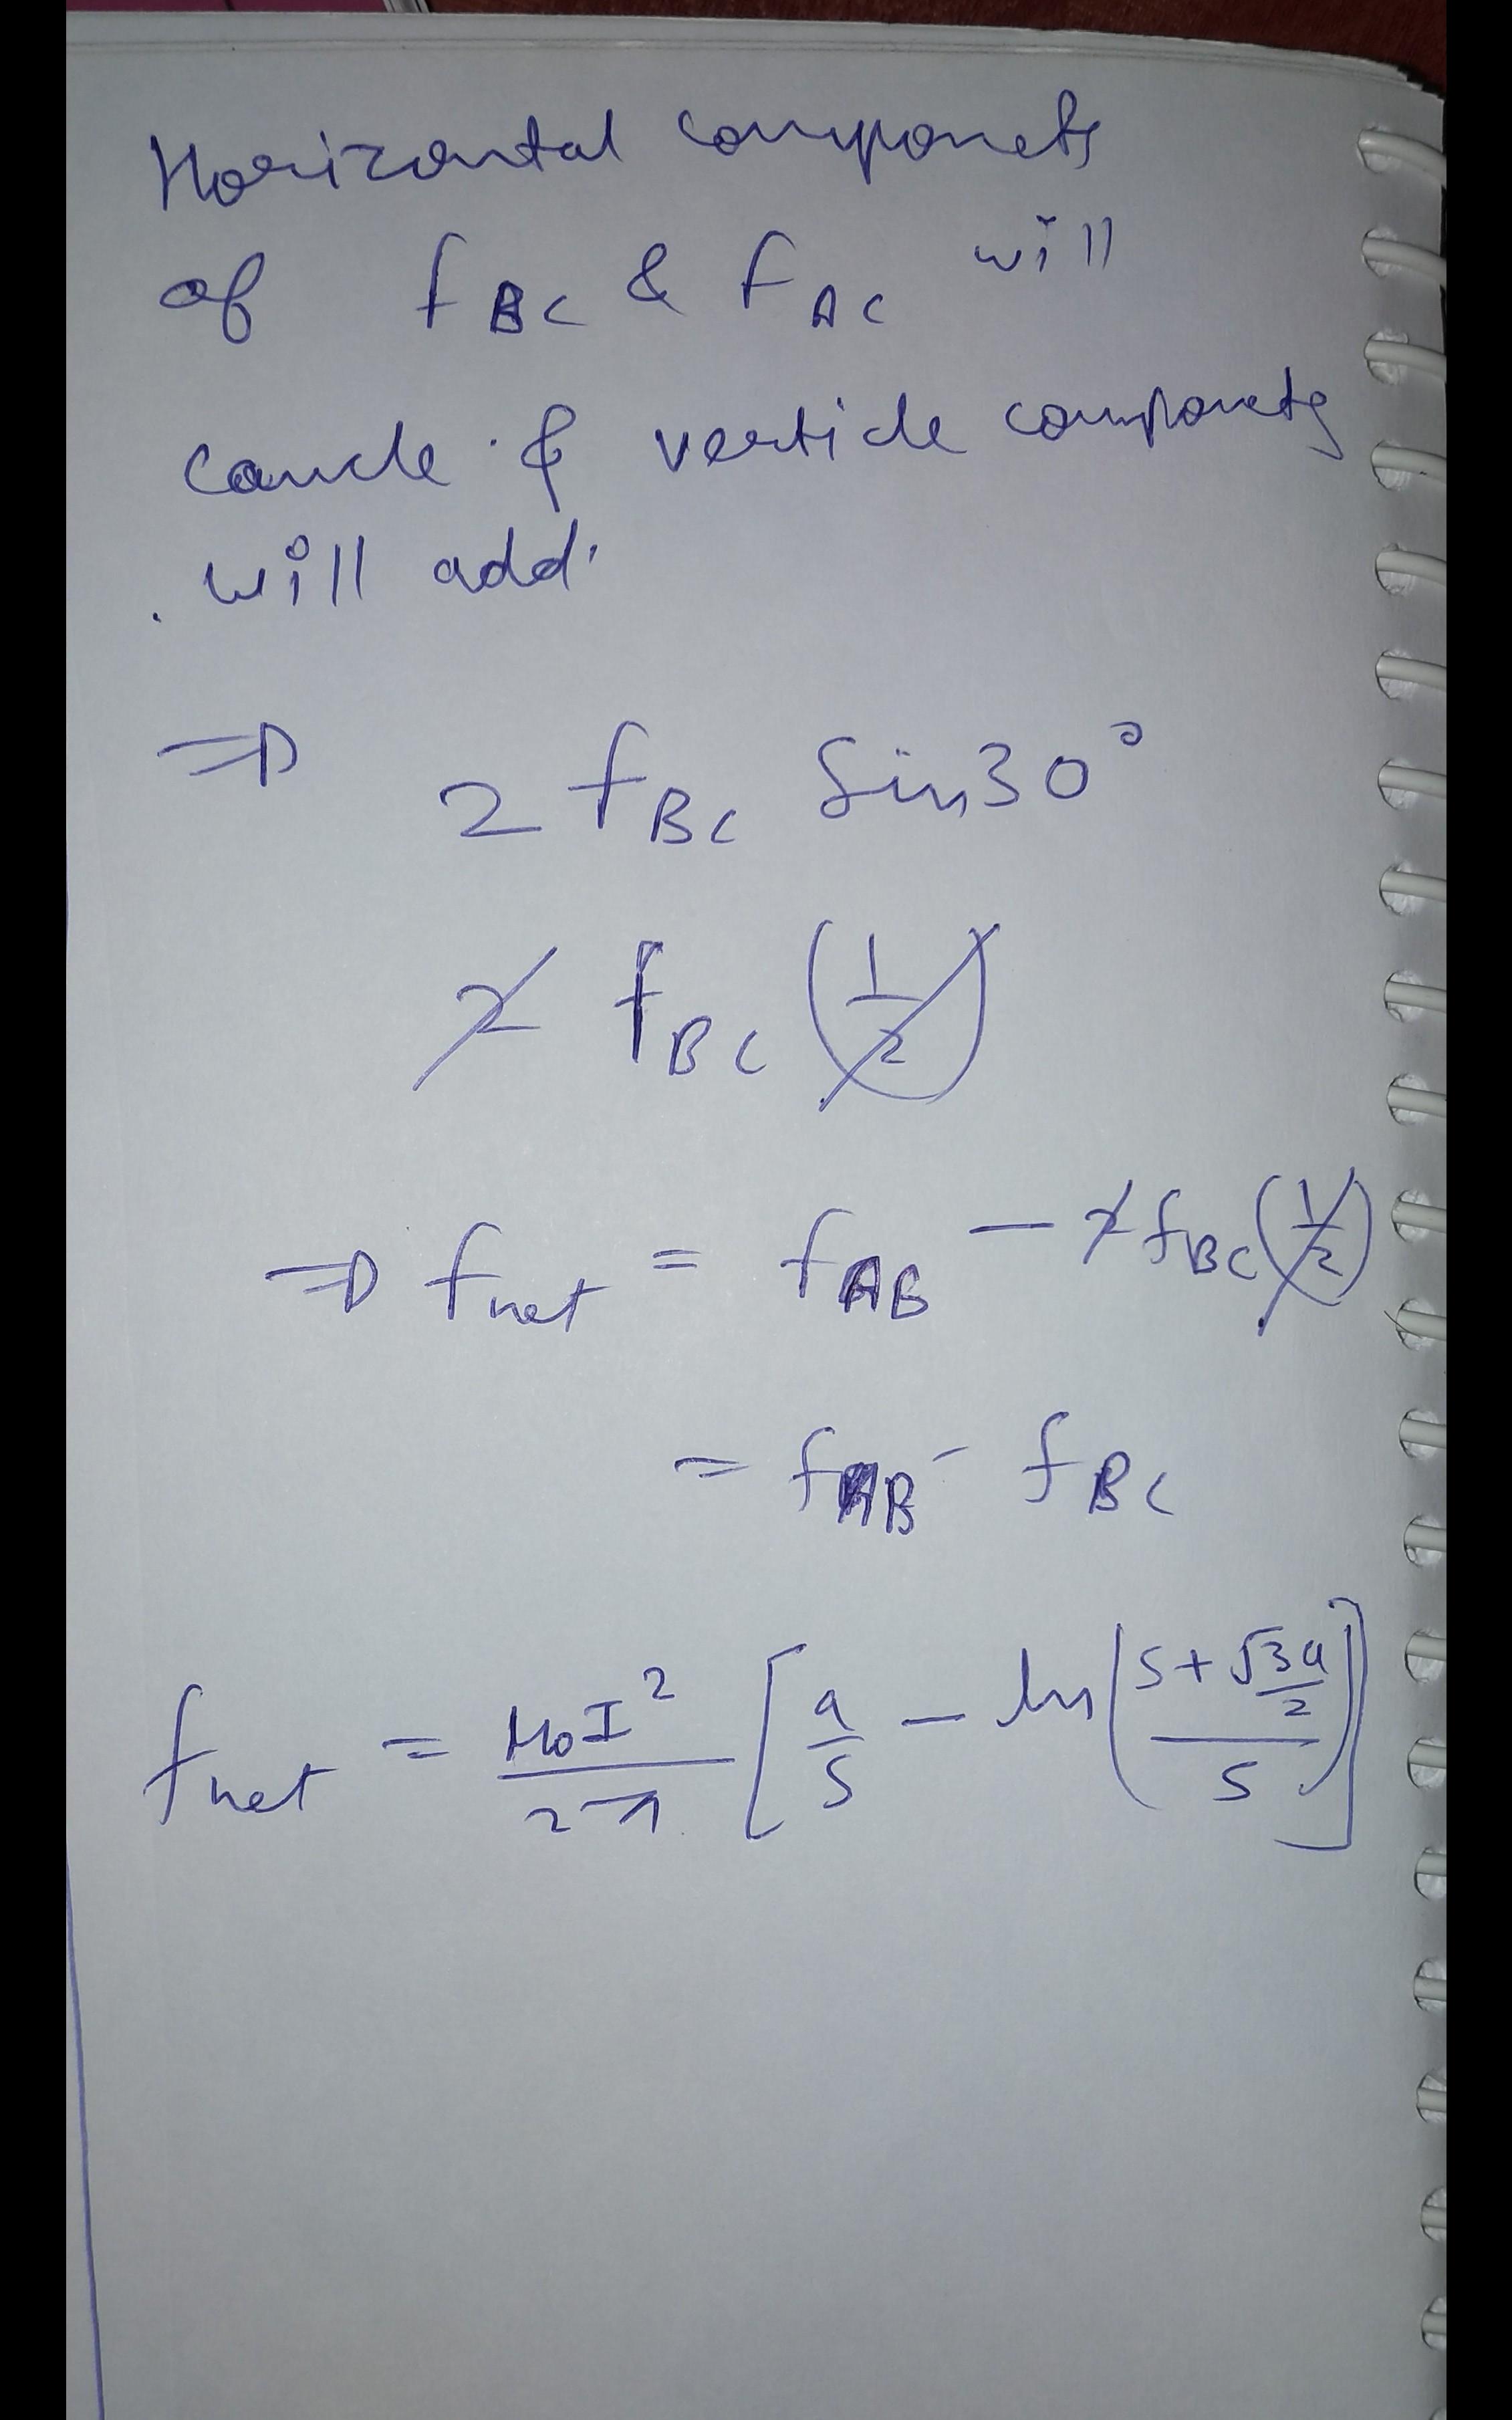 Horizontal componets
of fBC & fAC will
cancle & verticle componets
will add.
⇒ 2 fBC Sin30°
2 fBC (1/2)
⇒ fnet = fAB - 2 fBC (1/2)
= fAB - fBC
fnet = μ0I²/2π [a/s - ln((s + √3a/2)/s)]